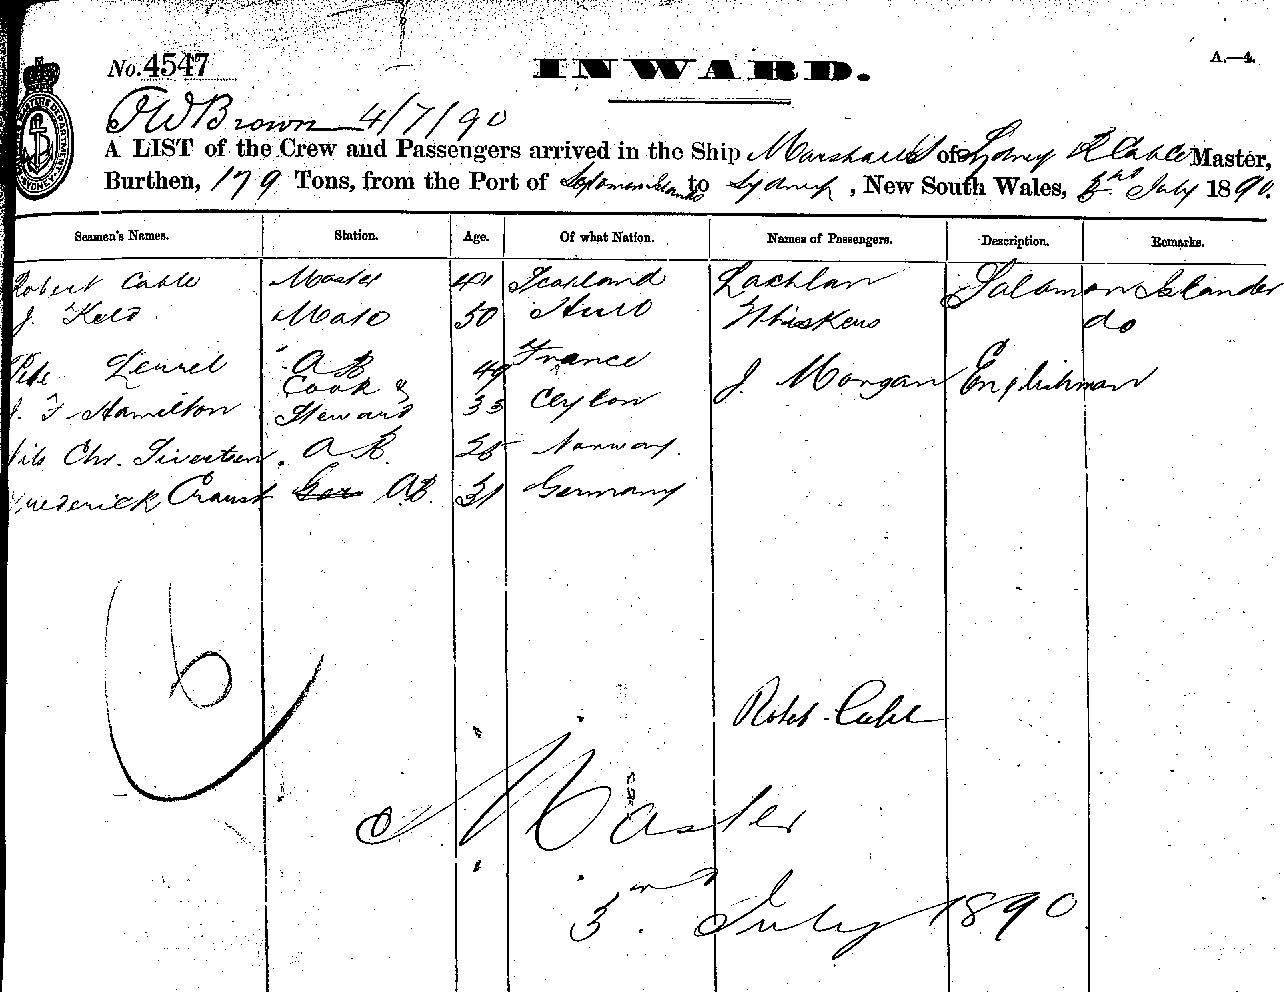 No. 4547
INWARD.
A.—4.
F W Brown 4/7/90
A LIST of the Crew and Passengers arrived in the Ship Marshall S of Sydney R Cable Master,
Burthen, 179 Tons, from the Port of Solomon Islands to Sydney, New South Wales, 3rd July 1890.
Seamen's Names. Station. Age. Of what Nation. Names of Passengers. Description. Remarks.
Robert Cable Master 41 Scotland Lachlan Solomon Islander
J. Keld Mate 50 Hull Whiskers do
A B 49 France J. Morgan Englishman
J. F Hamilton Cook & Steward 33 Ceylon
Nils Chr. Sivertsen A B. 25 Norway.
Frederick Craust A B. 31 Germany
6
Robt Cable
Master
3rd July 1890